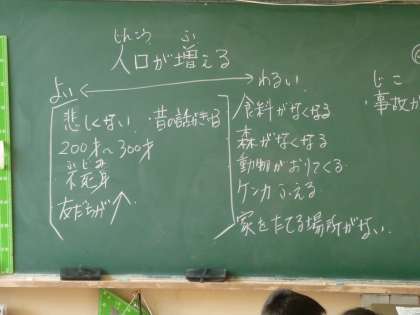 じんこう ふ
人口が増える
よい ⟷ わるい
悲しくない ・昔の話がきける
200才〜300才
ふじみ
不死身
友だちが↑
食料がなくなる
森がなくなる
動物がおりてくる
ケンカふえる
家をたてる場所がない
じこ
・事故が